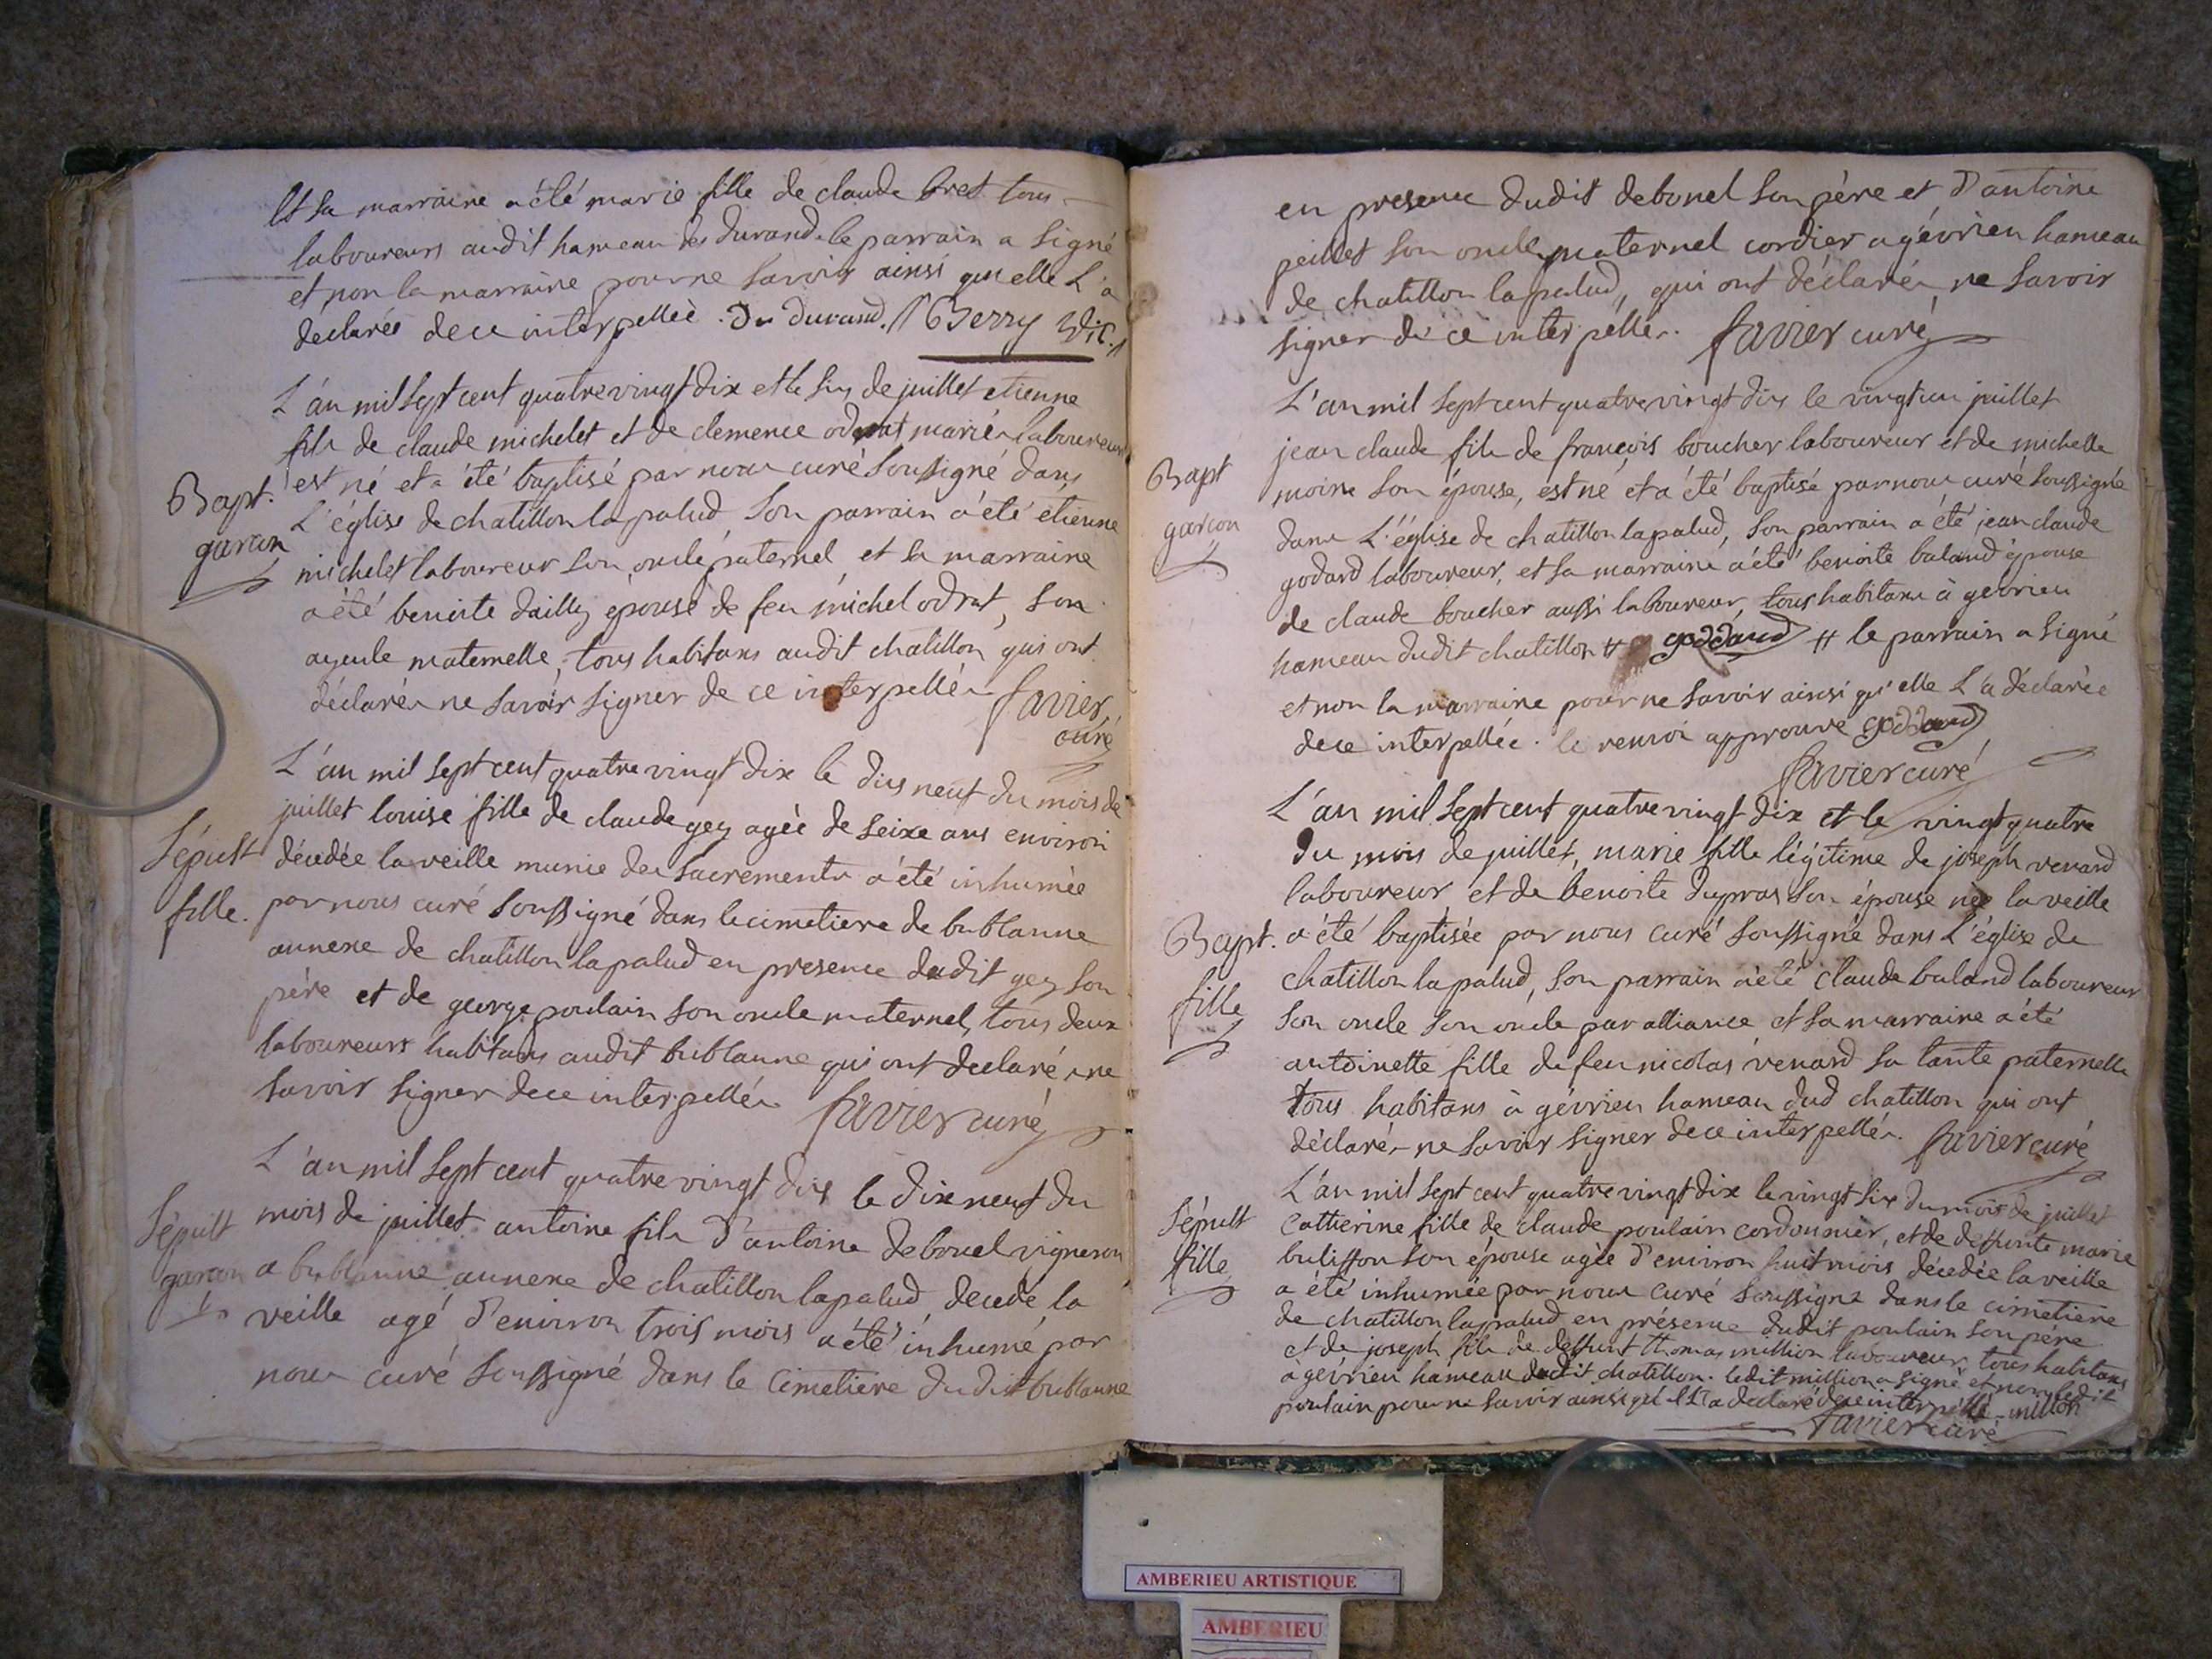 Et sa marraine a été marie fille de claude bret tous
laboureurs audit hameau des durand. le parrain a signé
et non la marraine pour ne savoir ainsi qu'elle L'a
déclarée de ce interpellée. Du durand. Berry vic.
L'an mil sept cent quatre vingt dix et le six de juillet etienne
fils de claude michelet et de clemence odrat mariés laboureurs
Bapt.
garcon
est né et a été baptisé par nous curé soussigné dans
L'église de chatillon lapalud son parrain a été étienne
michelet laboureur son oncle paternel et sa marraine
a été benoite dailly epouse de feu michel odrat, son
ayeule maternelle, tous habitans audit chatillon qui ont
déclarés ne savoir signer de ce interpellés favier
curé
L'an mil sept cent quatre vingt dix le dix neuf du mois de
juillet louise fille de claude gey agée de seize ans environ
Sépult
fille.
décedée la veille munie des sacrements a été inhumée
par nous curé soussigné dans le cimetiere de bublanne
annexe de chatillon lapalud en presence dudit gey son
père et de george poulain son oncle maternel, tous deux
laboureurs habitans audit bublanne qui ont declarés ne
savoir signer de ce interpellés favier curé
L'an mil sept cent quatre vingt dix le dix neuf du
Sépult
garcon
mois de juillet antoine fils d'antoine debonel vigneron
a bublanne annexe de chatillon lapalud, decedé la
veille agé d'environ trois mois a été inhumé par
nous curé soussigné dans le cimetiere dudit bublanne
en presence dudit debonel son père et d'antoine
peillet son oncle maternel cordier a gévrieu hameau
de chatillon lapalud, qui ont déclarés ne savoir
signer de ce interpellés. favier curé
L'an mil sept cent quatre vingt dix le vingt un juillet
jean claude fils de françois boucher laboureur et de michelle
Bapt
garcon
moine son épouse, est né et a été baptisé par nous curé soussigné
dans L'église de chatillon lapalud, son parrain a été jean claude
godard laboureur, et sa marraine a été benoite baland épouse
de claude boucher aussi laboureur, tous habitans à gevrieu
hameau dudit chatillon # goddard # le parrain a signé
et non la marraine pour ne savoir ainsi qu'elle L'a déclarée
de ce interpellée. le renvoi approuvé goddard
favier curé
L'an mil sept cent quatre vingt dix et le vingt quatre
du mois de juillet, marie fille légitime de joseph venard
laboureur et de benoite dupras son épouse née la veille
Bapt.
fille
a été baptisée par nous curé soussigné dans L'église de
chatillon la palud, son parrain a été claude baland laboureur
son oncle son oncle par alliance et sa marraine a été
antoinette fille de feu nicolas venard sa tante paternelle
tous habitans à gévrieu hameau dud chatillon qui ont
déclarés ne savoir signer de ce interpellés. favier curé
L'an mil sept cent quatre vingt dix le vingt six du mois de juillet
Sépult
fille
Catherine fille de claude poulain cordonnier, et de deffunte marie
buliffon son épouse agée d'environ huit mois décedée la veille
a été inhumée par nous curé soussigné dans le cimetiere
de chatillon lapalud en présence dudit poulain son père
et de joseph fils de deffunt thomas million laboureur, tous habitans
à gévrieu hameau dudit chatillon. ledit million a signé et non ledit
poulain pour ne savoir ainsi qu'il l'a declaré de ce interpellé. million
favier curé
AMBERIEU ARTISTIQUE
AMBERIEU